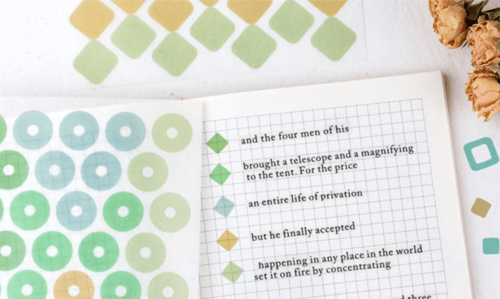 and the four men of his
brought a telescope and a magnifying
to the tent. For the price
an entire life of privation
but he finally accepted
happening in any place in the world
set it on fire by concentrating
and three